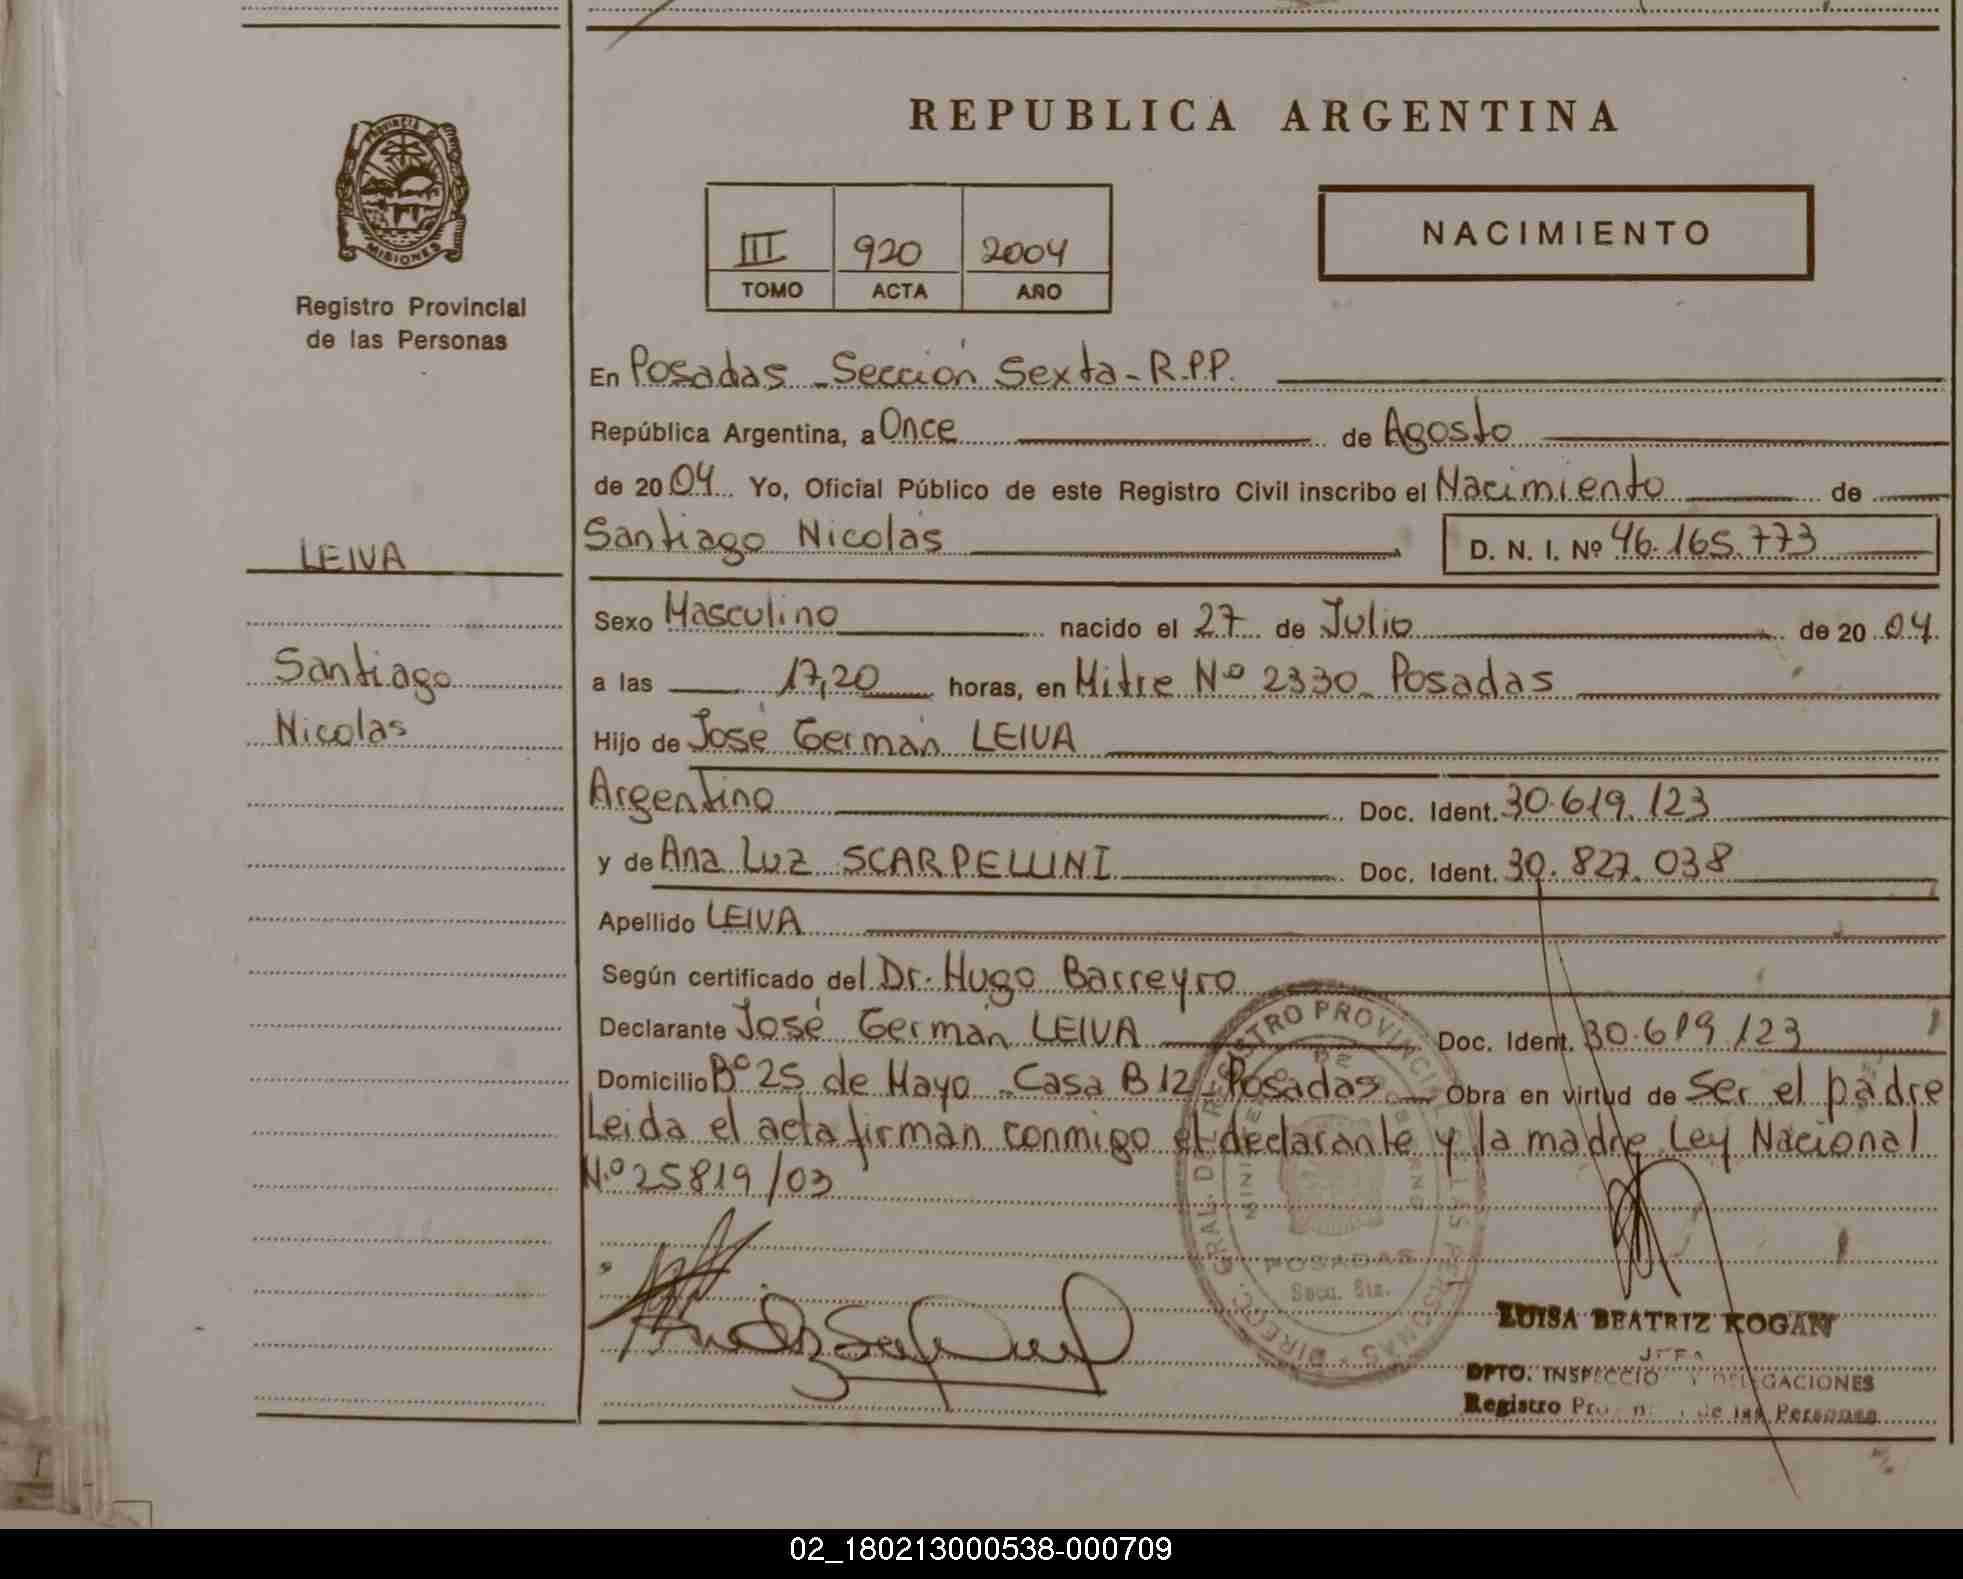 REPUBLICA ARGENTINA
Provincia de
MISIONES
Registro Provincial
de las Personas
III 920 2004
TOMO ACTA AÑO
NACIMIENTO
En Posadas - Sección Sexta - R.P.P.
República Argentina, a Once de Agosto
de 2004 Yo, Oficial Público de este Registro Civil inscribo el Nacimiento de
Santiago Nicolás D. N. I. Nº 46.165.773
LEIVA
Santiago
Nicolas
Sexo Masculino nacido el 27 de Julio de 2004.
a las 17,20 horas, en Mitre Nº 2330 Posadas
Hijo de José Germán LEIVA
Argentino Doc. Ident. 30.619.123
y de Ana Luz SCARPELLINI Doc. Ident. 30.827.038
Apellido LEIVA
Según certificado del Dr. Hugo Barreyro
Declarante José Germán LEIVA Doc. Ident. 30.619.123
Domicilio Bº 25 de Mayo - Casa B 12 - Posadas Obra en virtud de Ser el padre
Leida el acta firman conmigo el declarante y la madre Ley Nacional
N.º 25819/03
DIREC. GRAL. DE REGISTRO PROVINCIAL DE LAS PERSONAS
POSADAS
Secc. 6ta.
LUISA BEATRIZ KOGAN
JEFA
DPTO. INSPECCION Y DELEGACIONES
Registro Provincial de las Personas
02_180213000538-000709